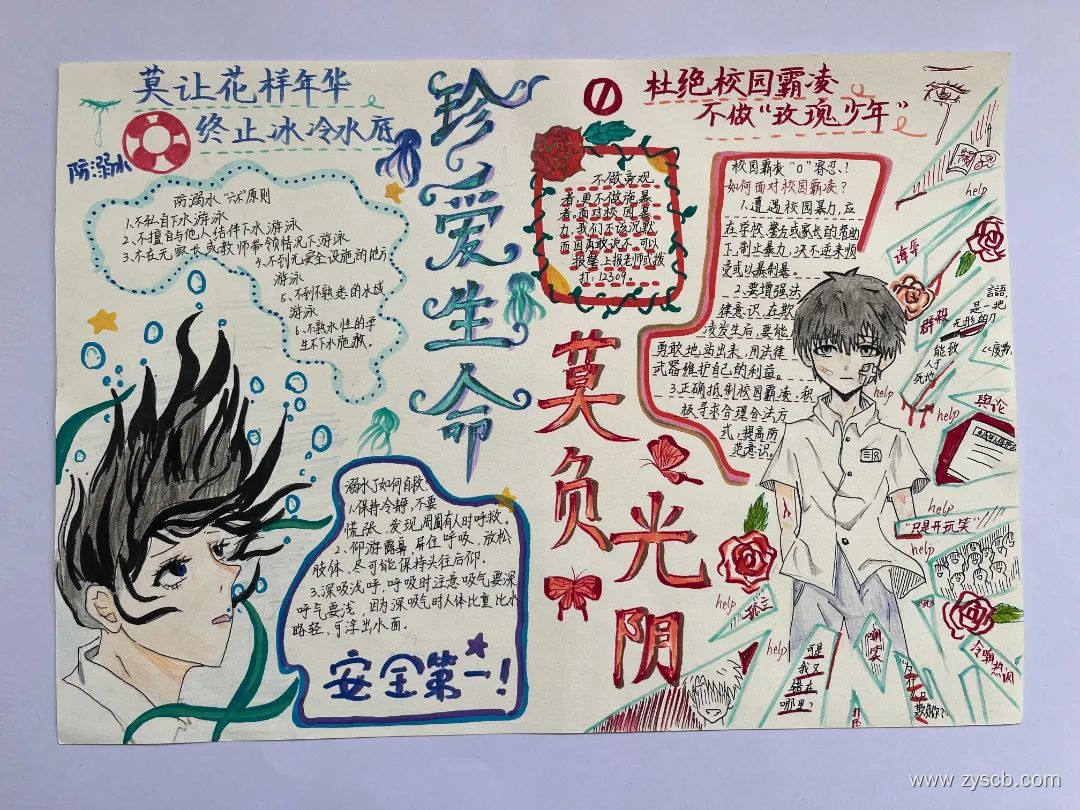 莫让花样年华
终止冰冷水底
防溺水
防溺水“六不”原则
1、不私自下水游泳
2、不擅自与他人结伴下水游泳
3、不在无家长或教师带领情况下游泳
4、不到无安全设施的地方
游泳
5、不到不熟悉的水域
游泳
6、不熟水性的学
生不下水施救。
溺水了如何自救:
1.保持冷静,不要
慌张、发现周围有人时呼救。
2、仰游露鼻,屏住呼吸、放松
肢体、尽可能保持头往后仰。
3、深吸浅呼,呼吸时注意吸气要深
呼气要浅、因为深吸气时人体比重比水
略轻,可浮出水面。
安全第一!
珍爱生命
莫负光阴
杜绝校园霸凌
不做“玫瑰少年”
不做旁观
者,更不做施暴
者。面对校园暴
力,我们不该沉默
而因勇敢说不,可以
报警、上报老师或拨
打:12309。
校园霸凌“0”容忍!
如何面对校园霸凌?
1.遭遇校园暴力,应
在学校、警方或家长的帮助
下制止暴力,决不逆来顺
受或以暴制暴。
2.要增强法
律意识,在欺
凌发生后,要能
勇敢地站出来,用法律
武器维护自己的利益。
3.正确抵制校园霸凌,积
极寻求合理合法方
式,提高防
范意识。
help
侮辱
群殴
言語,
是一把
无形的刀
能致
人于
死地
help
help
舆论
help
“只是开玩笑”
help
help
孤立
help
嘲笑
冷嘲热讽
可是
我又
错在
哪里?
www.zyscb.com